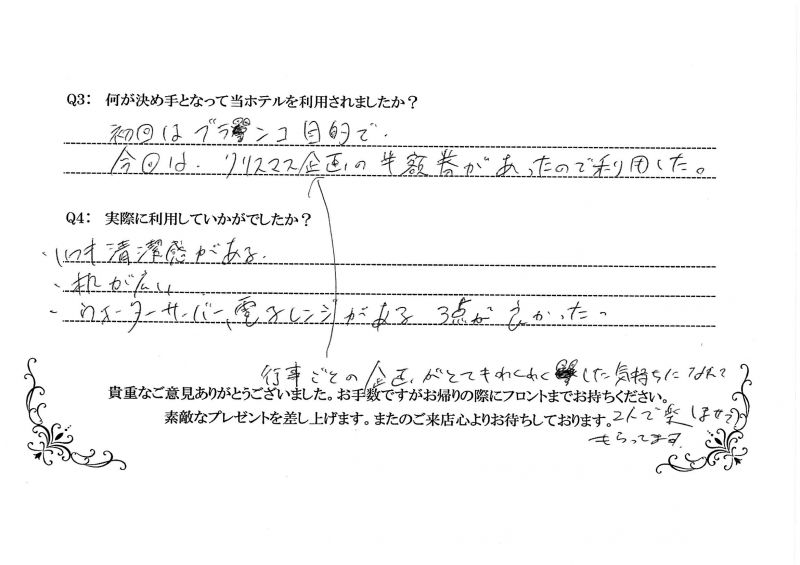 Q3: 何が決め手となって当ホテルを利用されましたか？
初回はブランコ目的で.
今回は. クリスマス企画の半額券があったので利用した。
Q4: 実際に利用していかがでしたか？
・いつも清潔感がある.
・机が広い
・ウォーターサーバー、電子レンジがある 3点が良かった。
行事ごとの企画がとてもわくわくした気持ちになれて
貴重なご意見ありがとうございました。お手数ですがお帰りの際にフロントまでお持ちください。
素敵なプレゼントを差し上げます。またのご来店心よりお待ちしております。
2人で楽しませて
もらってます.